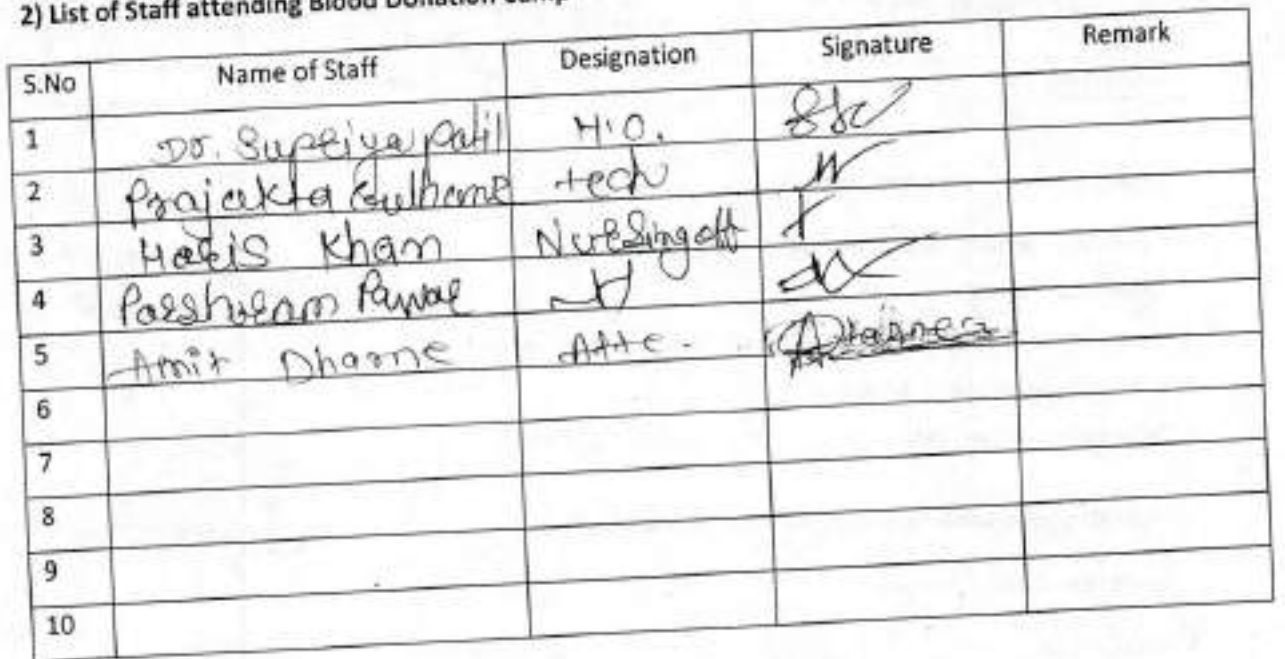 2) List of Staff attending Blood Donation Camp
S.No Name of Staff Designation Signature Remark
1 Dr. Supriya Patil M.O.
2 Prajakta Gulhane tech
3 Haris Khan Nursing off
4 Parshuram Pawar
5 Amit Dharne Atte.
6
7
8
9
10